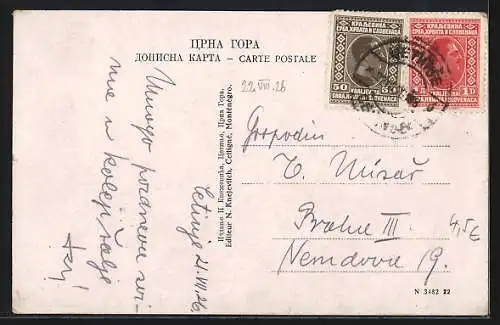 ЦРНА ГОРА
ДОПИСНА КАРТА — CARTE POSTALE
КРАЉЕВИНА
СРБА, ХРВАТА И СЛОВЕНАЦА
50 50
KRALJEVINA
SRBA, HRVATA I SLOVENACA
КРАЉЕВИНА
СРБА, ХРВАТА И СЛОВЕНАЦА
1 Д 1 D
KRALJEVINA
SRBA, HRVATA I SLOVENACA
22. VIII. 26
Mnogo
pozdrava
i
šalje
Cetinje 21. VII. 26.
Издање Н. Кнежевића, Цетиње, Црна Гора.
Editeur N. Knejevitch, Cettigné, Monténégro.
Gospodin
Praha III.
Nemdova 19.
4,50
N 3482 22